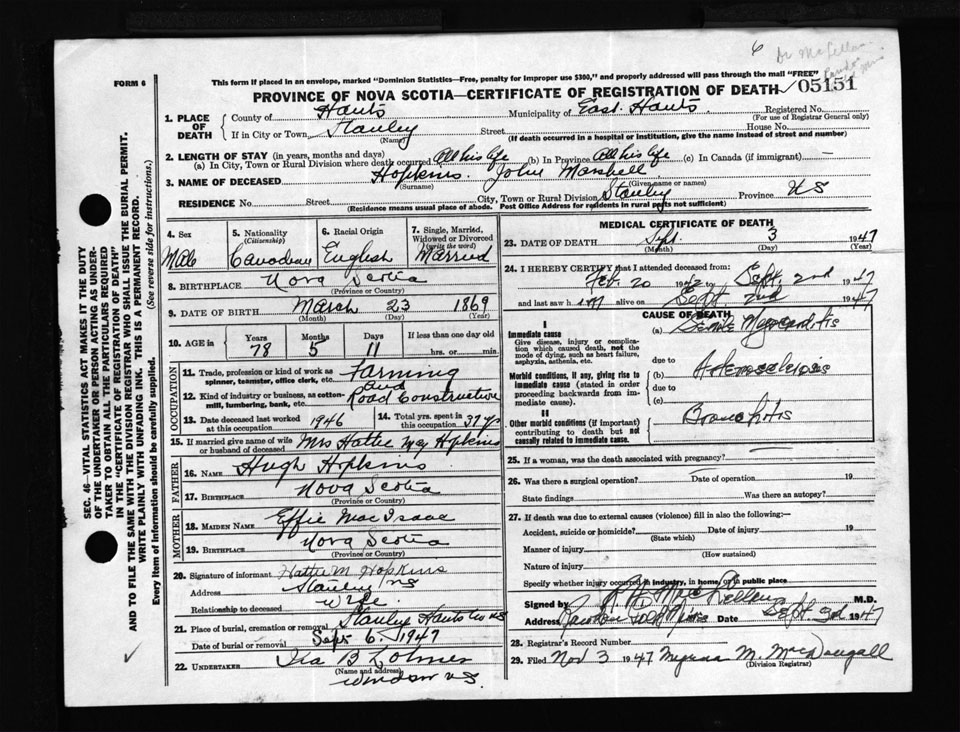 6
Dr McLellan
FORM 6
This form if placed in an envelope, marked "Dominion Statistics—Free, penalty for improper use $300," and properly addressed will pass through the mail "FREE"
PROVINCE OF NOVA SCOTIA—CERTIFICATE OF REGISTRATION OF DEATH 05151
1. PLACE OF DEATH County of Hants Municipality of East Hants Registered No.
(For use of Registrar General only)
If in City or Town Stanley Street House No.
(Name) (If death occurred in a hospital or institution, give the name instead of street and number)
2. LENGTH OF STAY (in years, months and days)
(a) In City, Town or Rural Division where death occurred All his life (b) In Province All his life (c) In Canada (if immigrant) —
3. NAME OF DECEASED Hopkins John Marshell
(Surname) (Given name or names)
RESIDENCE No. Street City, Town or Rural Division Stanley Province NS
(Residence means usual place of abode. Post Office Address for residents in rural parts not sufficient)
4. Sex 5. Nationality (Citizenship) 6. Racial Origin 7. Single, Married, Widowed or Divorced (write the word)
Male Canadian English Married
8. BIRTHPLACE Nova Scotia
(Province or Country)
9. DATE OF BIRTH March 23 1869
(Month) (Day) (Year)
10. AGE in Years Months Days If less than one day old
78 5 11 hrs. or min.
OCCUPATION
11. Trade, profession or kind of work as spinner, teamster, office clerk, etc. Farming
and
12. Kind of industry or business, as cotton-mill, lumbering, bank, etc. Road Construction
13. Date deceased last worked at this occupation 1946 14. Total yrs. spent in this occupation 37 yrs
15. If married give name of wife or husband of deceased Mrs Hattie May Hopkins
FATHER
16. NAME Hugh Hopkins
17. BIRTHPLACE Nova Scotia
(Province or Country)
MOTHER
18. MAIDEN NAME Effie MacIsaac
19. BIRTHPLACE Nova Scotia
(Province or Country)
20. Signature of informant Hattie M Hopkins
Address Stanley NS
Relationship to deceased Wife
21. Place of burial, cremation or removal Stanley Hants Co NS
Date of burial or removal Sept 6 1947
22. UNDERTAKER Ira B Lohnes
(Name and address)
Windsor NS
MEDICAL CERTIFICATE OF DEATH
23. DATE OF DEATH Sept. 3 1947
(Month) (Day) (Year)
24. I HEREBY CERTIFY that I attended deceased from:
Feb. 20 1942 to Sept. 2nd 1947
and last saw him alive on Sept 2nd 1947
CAUSE OF DEATH
I
Immediate cause
Give disease, injury or complication which caused death, not the mode of dying, such as heart failure, asphyxia, asthenia, etc.
(a) Senile Myocarditis
due to
Morbid conditions, if any, giving rise to immediate cause (stated in order proceeding backwards from immediate cause).
(b) Arteriosclerosis
due to
(c)
II
Other morbid conditions (if important) contributing to death but not causally related to immediate cause.
Bronchitis
25. If a woman, was the death associated with pregnancy?
26. Was there a surgical operation? Date of operation 19
State findings Was there an autopsy?
27. If death was due to external causes (violence) fill in also the following:—
Accident, suicide or homicide? Date of injury 19
(State which)
Manner of injury
(How sustained)
Nature of injury
Specify whether injury occurred in industry, in home, or in public place
Signed by MacLellan M.D.
Address Rawdon Gold Mines Date Sept. 3rd 1947
28. Registrar's Record Number
29. Filed Nov 3 1947 M. McDougall
(Division Registrar)
SEC. 46—VITAL STATISTICS ACT MAKES IT THE DUTY
OF THE UNDERTAKER OR PERSON ACTING AS UNDER-
TAKER TO OBTAIN ALL THE PARTICULARS REQUIRED
IN THE "CERTIFICATE OF REGISTRATION OF DEATH"
AND TO FILE THE SAME WITH THE DIVISION REGISTRAR WHO SHALL ISSUE THE BURIAL PERMIT.
WRITE PLAINLY WITH UNFADING INK. THIS IS A PERMANENT RECORD.
Every item of information should be carefully supplied. (See reverse side for instructions.)